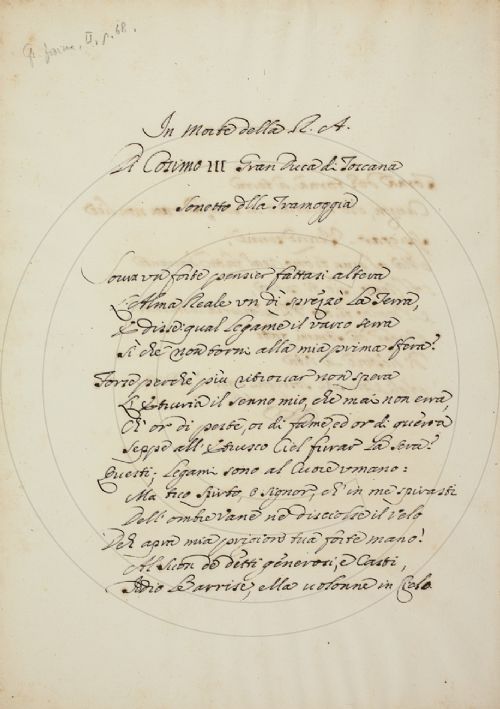 In Morte della R. A.
Di Cosimo III Gran Duca di Toscana
Sonetto della Tramoggia
Sovra un forte pensier fattasi altera
L'Alma Reale un di sprezzò la Terra,
E disse: qual legame il varco serra
Si che non torni alla mia prima sfera?
Forse perchè più ritrovar non spera
L'Etruria il senno mio, che mai non erra,
Ch'or di peste, or di fame, ed or di guerra
Seppe all'Etrusco Ciel furar la sera?
Questi Legami sono al Cuore umano:
Ma tuo Spirto, o Signor, ch'in me spirasti
Dell'ombre vane ne disciolse il velo
Deh apra mia prigion tua forte mano!
Al suon de detti generosi, e Casti,
Iddio le arrise, ella volonne in Cielo